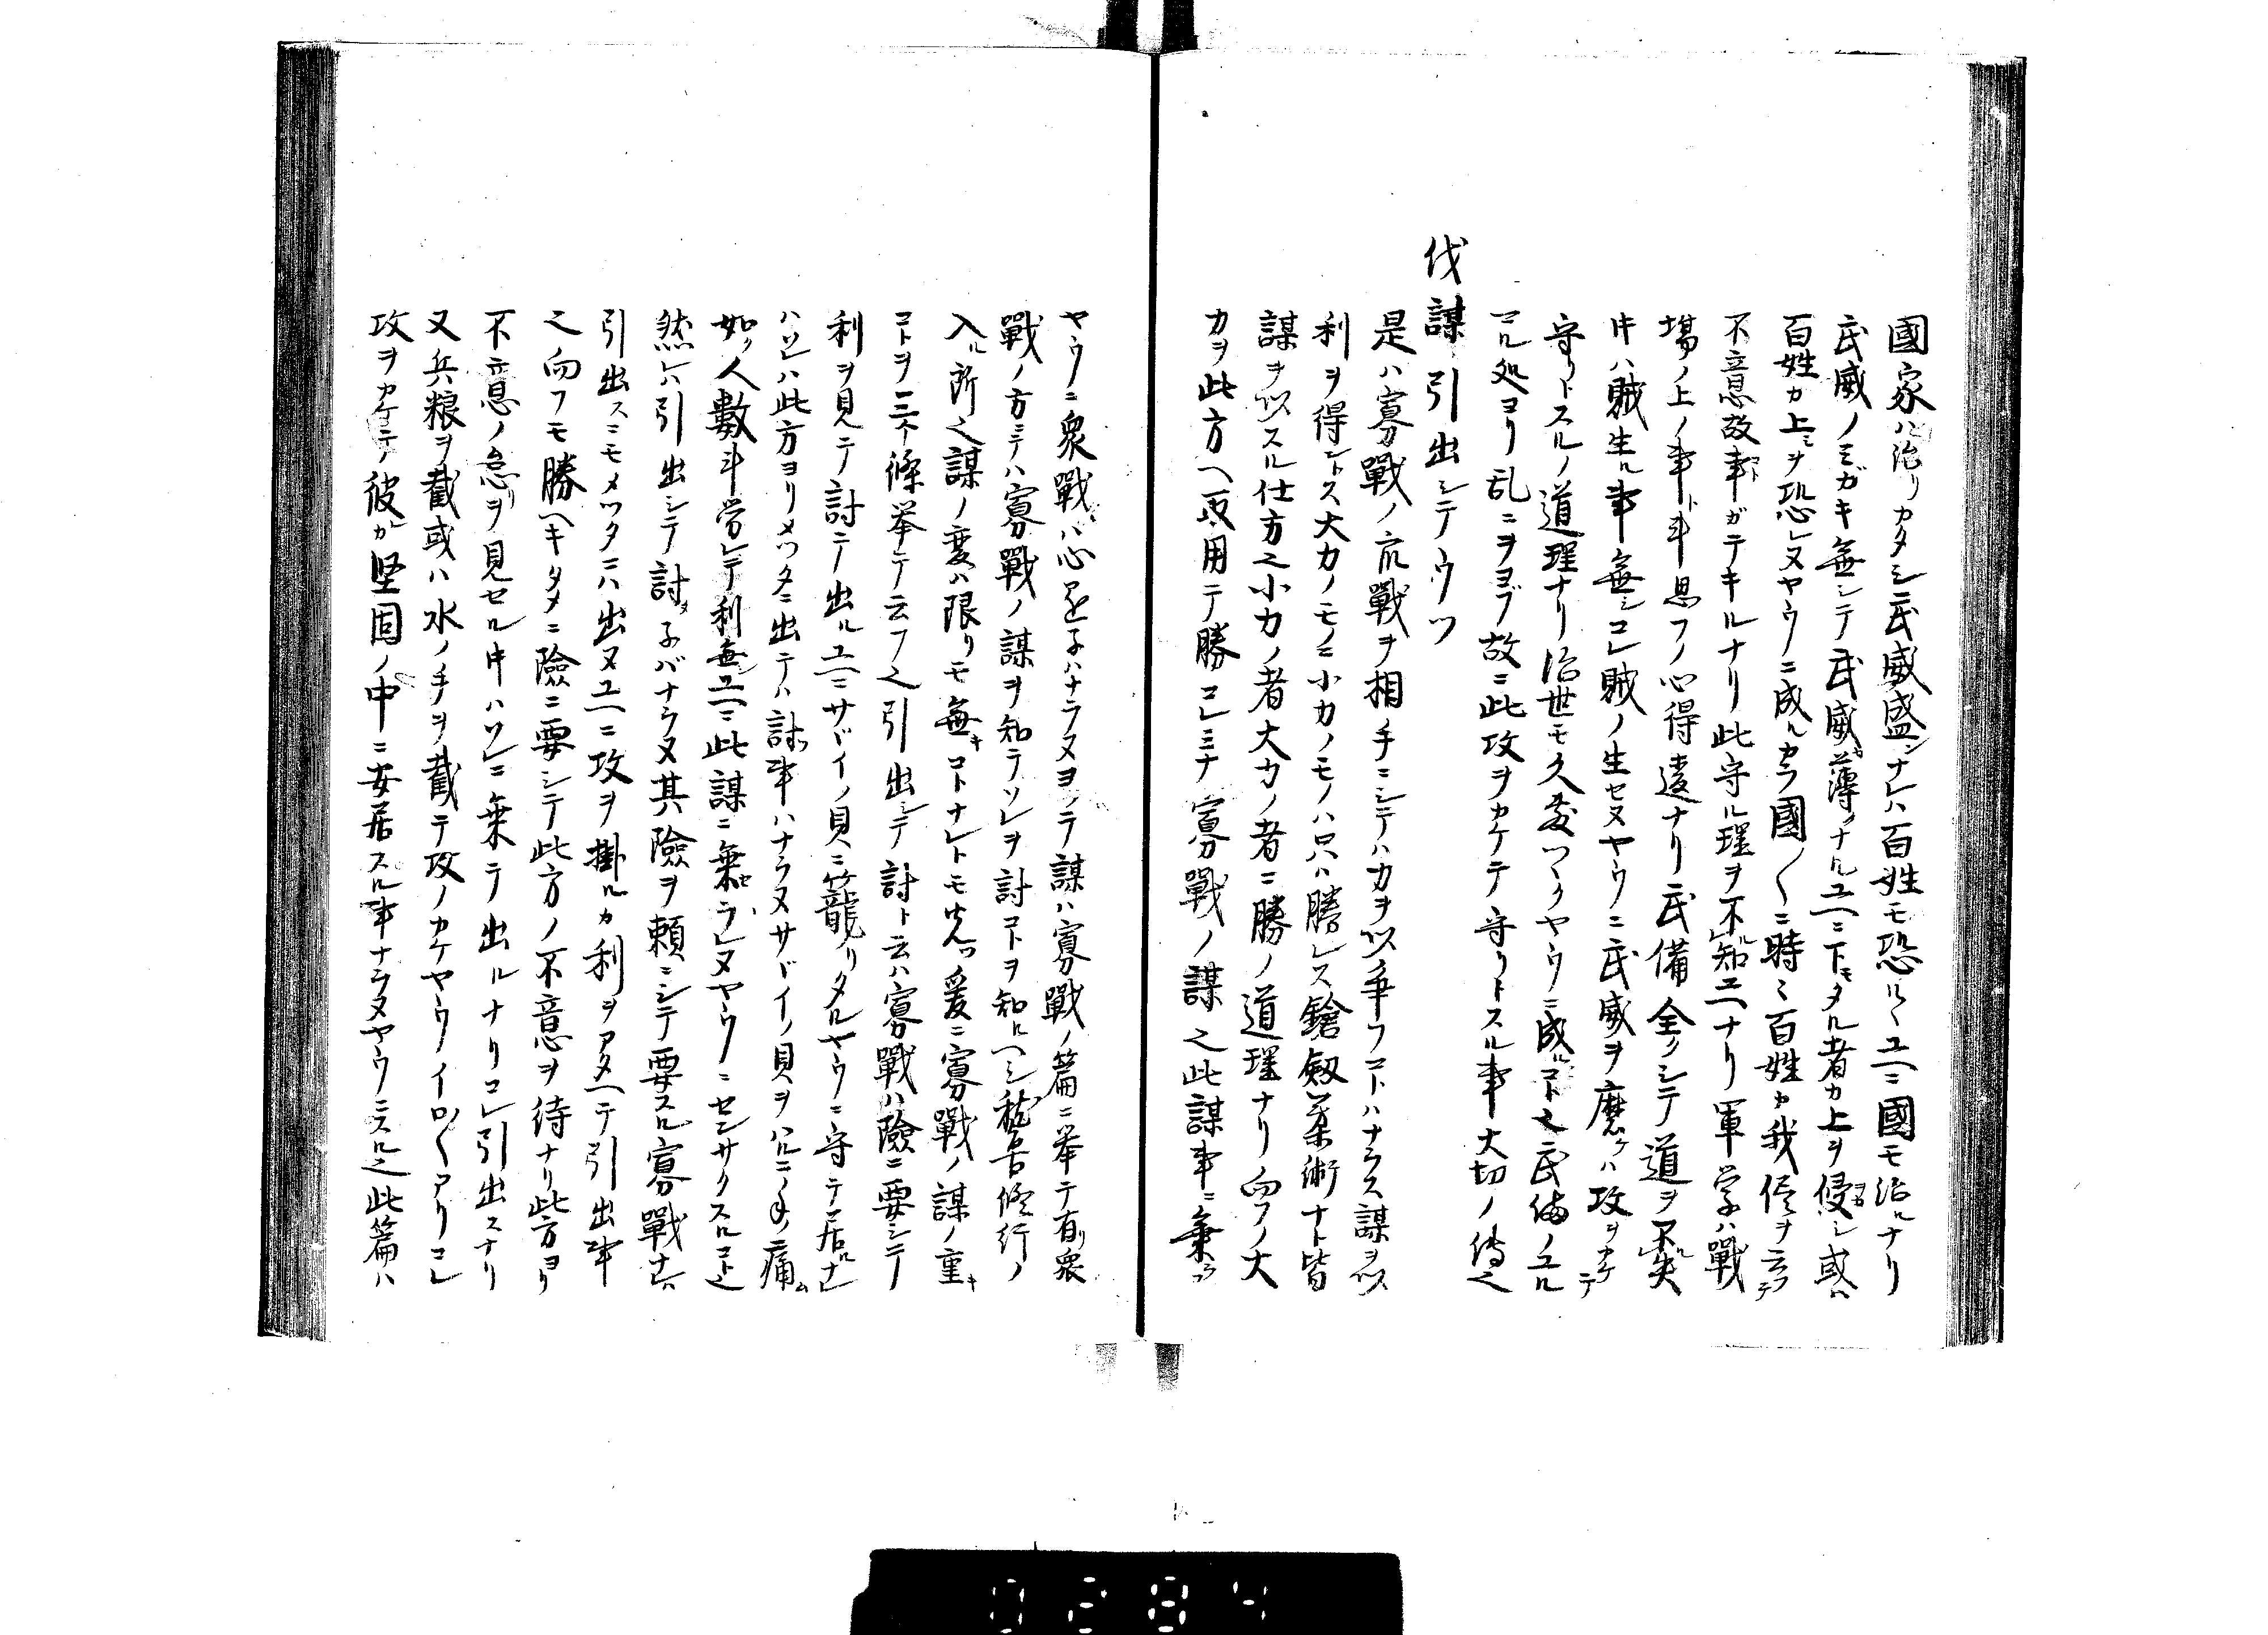 國家ハ治リカタシ武威盛ンナレハ百姓モ恐ルヽユヘニ國モ治ルナリ
武威ノミガキ無シテ武威薄ナルユヘニ下タル者カ上ヲ侵シ或ハ
百姓カ上ミヲ恐レヌヤウニ成ルカラ國〱ニ時ミ百姓カ我侭ヲ云テ
不意故事ガテキルナリ此守ル理ヲ不知ユヘナリ軍学ハ戰
場ノ上ノ事ト斗思フノ心得違ナリ武備全クシテ道ヲ不失
中ハ賊生ル事無シコレ賊ノ生セヌヤウニ武威ヲ磨ケハ攻ヲカケテ
守リトスルノ道理ナリ治世モ久敷ツヽクヤウニ成ルコト也武備ノユル
マル処ヨリ乱ニヲヨブ故ニ此攻ヲカケテ守リトスル事大切ノ傳也
伐謀引出シテウツ
是ハ寡戰ノ衆戰ヲ相手ニシテハカヲ以争フコトハナラス謀ヲ以
利ヲ得ントス大カノモノニ小カノモノハ只ハ勝レス鎗劔柔術ナト皆
謀ヲ以スル仕方也小カノ者大カノ者ニ勝ノ道理ナリ向フノ大
カヲ此方ヘ取用テ勝コレミナ寡戰ノ謀也此謀事ニ乗ラヌ
ヤウニ衆戰ハ心ヲ子ハナラヌヨツテ謀ハ寡戰ノ篇ニ挙テ有リ衆
戰ノ方ニテハ寡戰ノ謀ヲ知テソレヲ討コトヲ知ルヘシ稽古修行ノ
入ル所也謀ノ変ハ限リモ無キコトナレトモ先ツ爰ニ寡戰ノ謀ノ重キ
コトヲ三ケ條挙テ云フ也引出シテ討ト云ハ寡戰ハ險ニ要シテ
利ヲ見テ討テ出ルユヘニサヾイノ貝ニ籠リタルヤウニ守テ居ルナレ
ハソレハ此方ヨリメツタニ出テハ討事ハナラヌサヾイノ貝ヲハルニノ手痛ム
如ク人數斗労レテ利無ユヘニ此謀ニ乗セラレヌヤウニセンサクスルコト也
然レハ引出シテ討タ子バナラヌ其險ヲ頼ニシテ要スル寡戰ナレハ
引出スニモメツタニハ出ヌユヘニ攻ヲ掛ルカ利ヲアタヘテ引出事
也向フモ勝ヘキタメニ險ニ要シテ此方ノ不意ヲ待ナリ此方ヨリ
不意ノ怠リヲ見セル中ハソレニ乗テ出ルナリコレ引出スナリ
又兵粮ヲ截或ハ水ノ手ヲ截テ攻ノカケヤウイロ〱アリコレ
攻ヲカケテ彼カ堅固ノ中ニ安居スル事ナラヌヤウニスル也此篇ハ